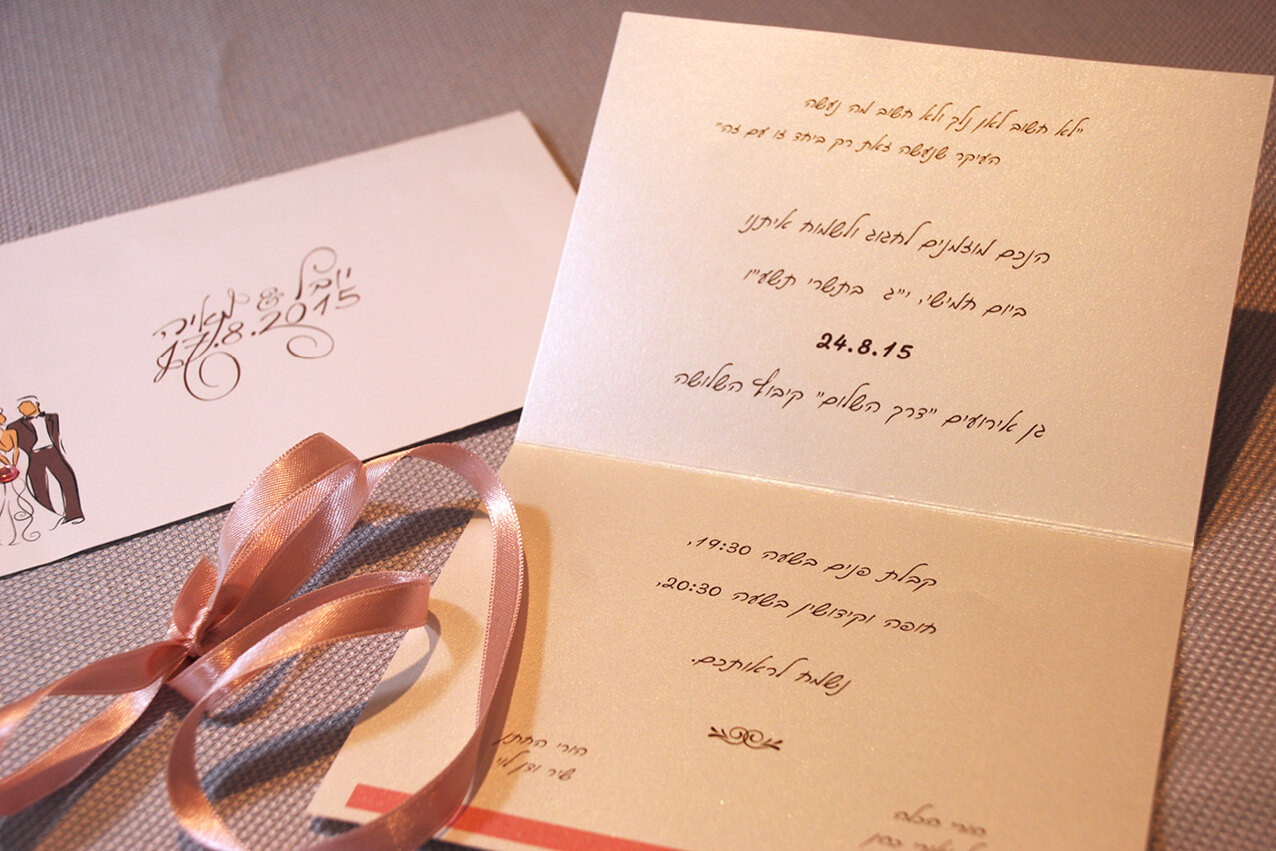 יובל & מאיה
17.8.2015
"לא חשוב לאן נלך ולא חשוב מה נעשה
העיקר שנעשה זאת רק ביחד זו עם זה"
הנכם מוזמנים לחגוג ולשמוח איתנו
ביום חמישי, י"ג בתשרי תשע"ו
24.8.15
גן אירועים "דרך השלום" קיבוץ השלושה
קבלת פנים בשעה 19:30,
חופה וקידושין בשעה 20:30,
נשמח לראותכם.
הורי החתן
שיר ודן לוי
הורי הכלה
כהן